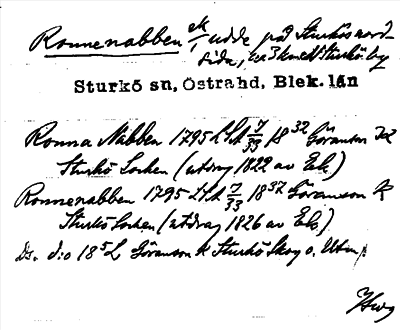 Ronnenabben ek/1, udde på Sturkös nord-
sida, ca 3 km N Sturkö by
Sturkö sn, Östrahd, Blek. län
Ronna Nabben 1795 LSA 7/33 18³² Göranson K
Sturkö Socken (utdrag 1822 av Ek.)
Ronnenabben 1795 LSA 7/33 18³² Göranson K
Sturkö Socken (utdrag 1826 av Ek.)
Ds. d:o 18⁵ L Göranson K Sturkö Skog o. Utm.